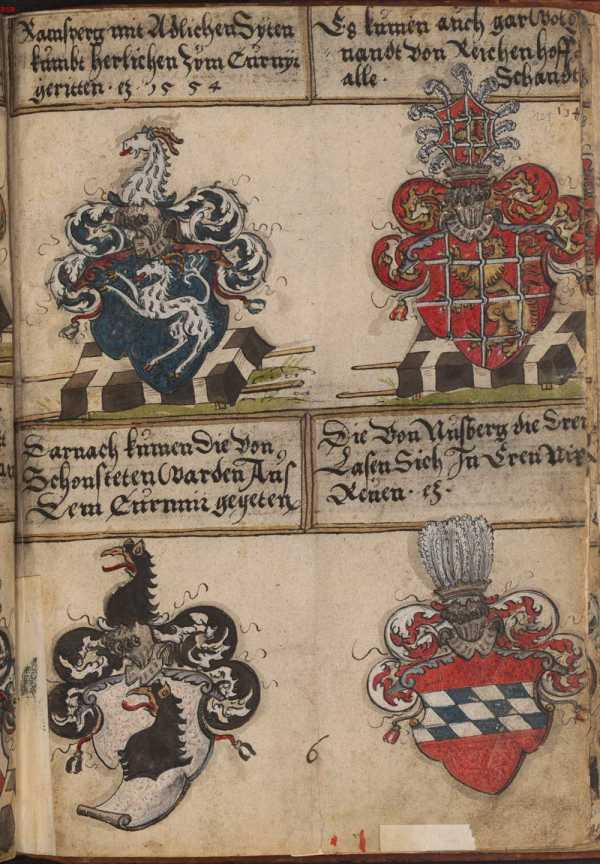 Ramsperg mit Adlichen Syten
kumbt herlichen zům Turnyr
geritten · ez · 1554
Es kumen auch gar Wol
nandt Von Reichenhoff
alle · Schandt
134
Darnach kumen Die Von
Schonsteten Warden Aus
Dem Turnnir gegeten
Die Von Nusberg die Drei
Lasen Sich In Eren
Reuen · ez ·
6